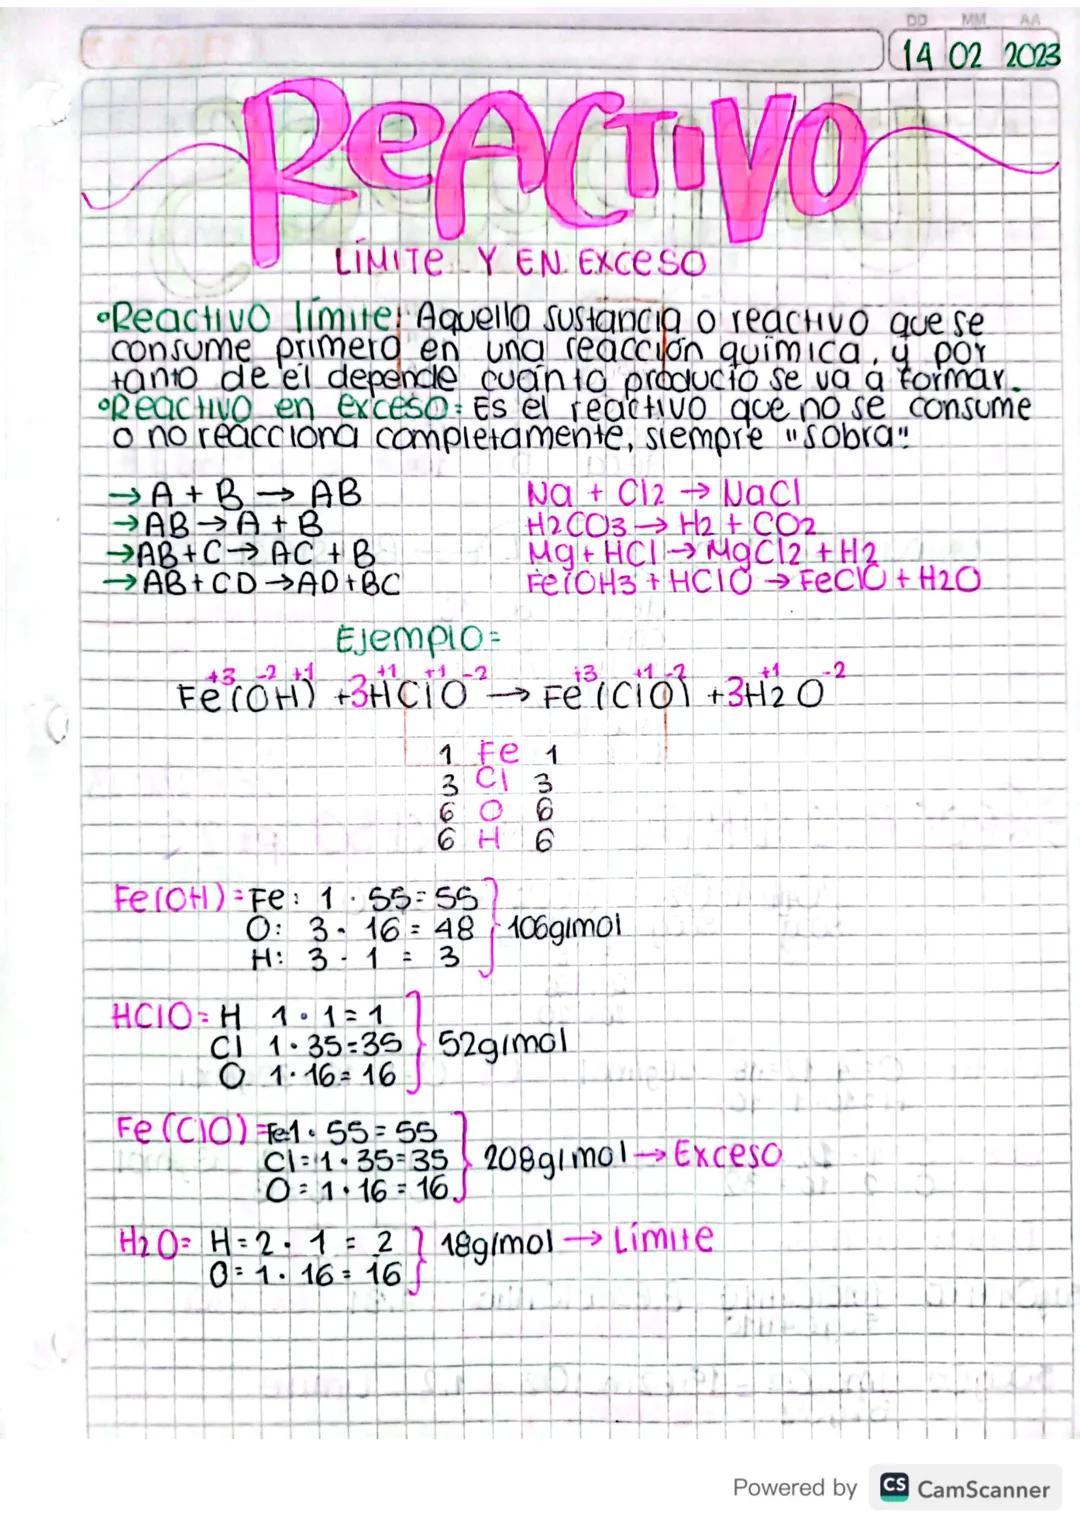 DD MM AA
14 02 2023
ReACTIVO
LÍMITE Y EN EXCESO
•Reactivo límite: Aquella sustancia o reactivo que se
consume primero en una reacción química, y por
tanto de él depende cuánto producto se va a formar.
•Reactivo en exceso: Es el reactivo que no se consume
o no reacciona completamente, siempre "sobra"
→ A + B → AB
Na + Cl2 → NaCl
→ AB → A + B
H2CO3 → H2 + CO2
→ AB + C → AC + B
Mg + HCl → MgCl2 + H2
→ AB + CD → AD + BC
Fe(OH3 + HClO → FeClO + H2O
Ejemplo=
+3 -2 +1 +1 +1 -2 +3 +1 -2 +1 -2
Fe(OH) +3HClO → Fe(ClO) +3H2O
1 Fe 1
3 Cl 3
6 O 6
6 H 6
Fe(OH) = Fe: 1 · 55 = 55
O: 3 · 16 = 48 106g/mol
H: 3 · 1 = 3
HClO = H 1 · 1 = 1
Cl 1 · 35 = 35 52g/mol
O 1 · 16 = 16
Fe(ClO) = Fe1 · 55 = 55
Cl = 1 · 35 = 35 208g/mol → Exceso
O = 1 · 16 = 16
H2O = H = 2 · 1 = 2 18g/mol → Límite
O = 1 · 16 = 16
Powered by CS CamScanner